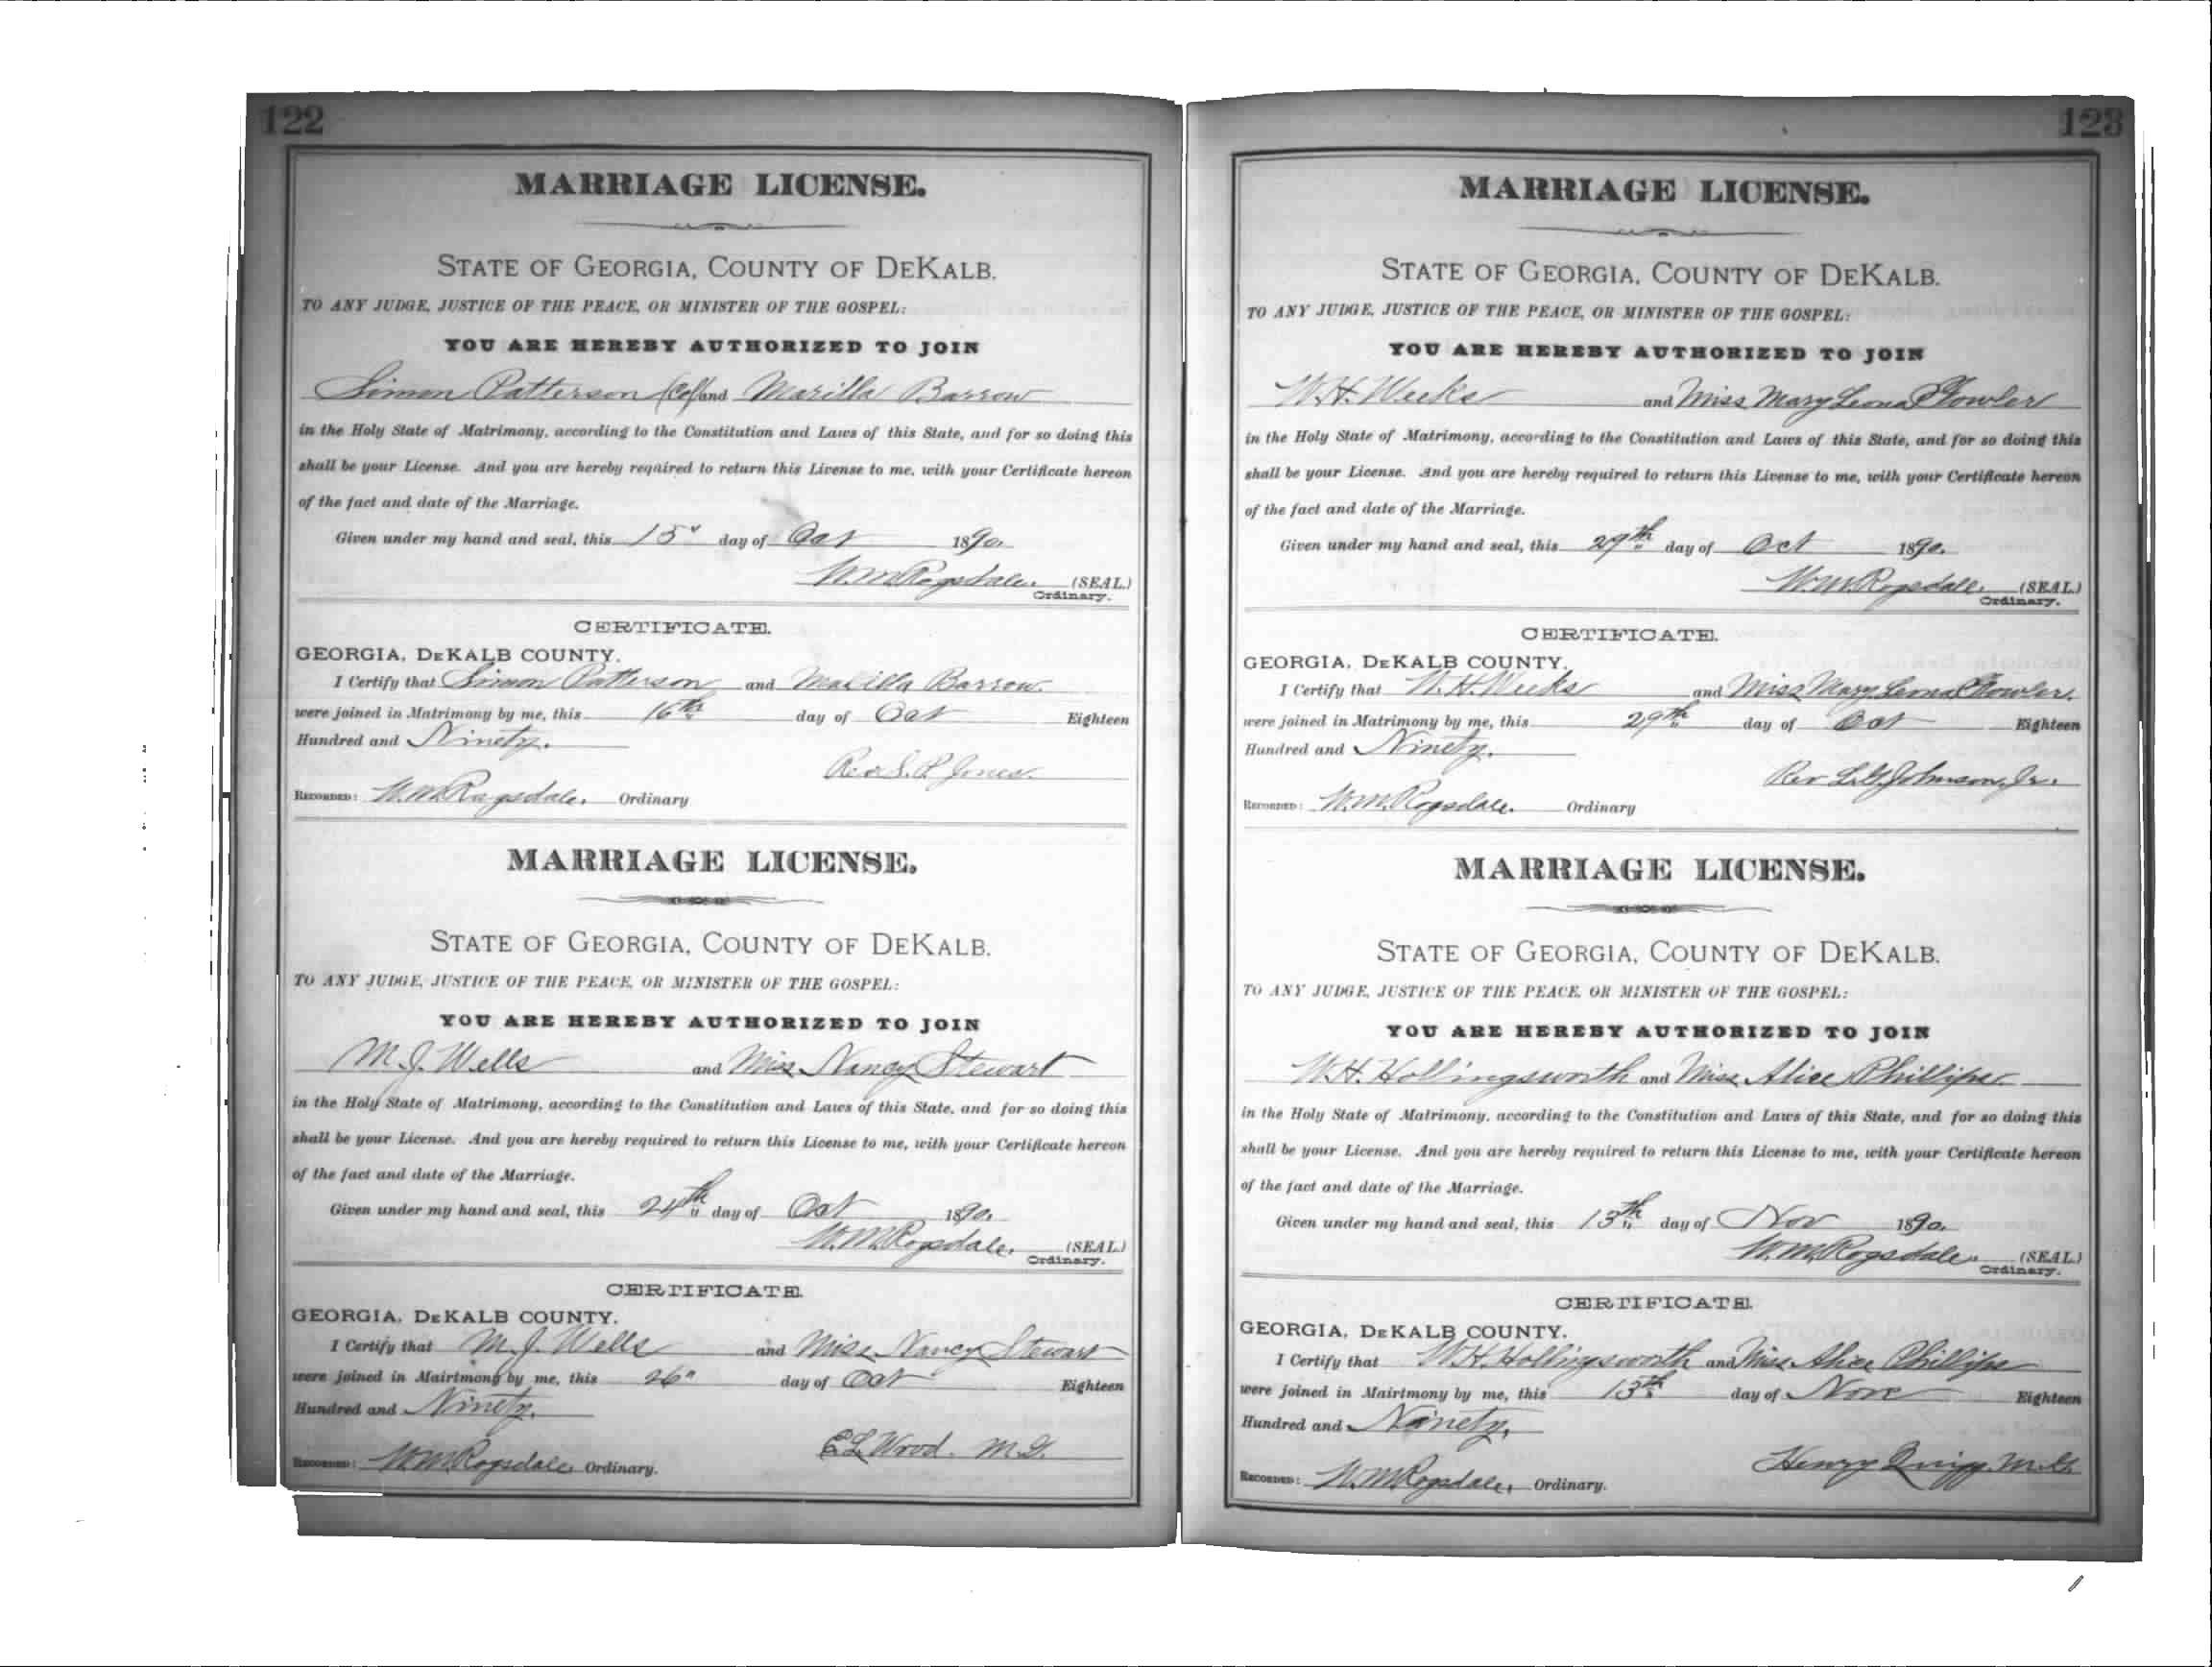 122
MARRIAGE LICENSE.
STATE OF GEORGIA, COUNTY OF DEKALB.
TO ANY JUDGE, JUSTICE OF THE PEACE, OR MINISTER OF THE GOSPEL:
YOU ARE HEREBY AUTHORIZED TO JOIN
Simon Patterson (Col) and Marilla Barrow
in the Holy State of Matrimony, according to the Constitution and Laws of this State, and for so doing this
shall be your License. And you are hereby required to return this License to me, with your Certificate hereon
of the fact and date of the Marriage.
Given under my hand and seal, this 15" day of Oct 1890.
W.M. Ragsdale. (SEAL)
Ordinary.
CERTIFICATE.
GEORGIA, DEKALB COUNTY.
I Certify that Simon Patterson and Marilla Barrow.
were joined in Matrimony by me, this 16th day of Oct Eighteen
Hundred and Ninety.
Rev S. P. Jones.
RECORDED: W.M. Ragsdale. Ordinary
MARRIAGE LICENSE.
STATE OF GEORGIA, COUNTY OF DEKALB.
TO ANY JUDGE, JUSTICE OF THE PEACE, OR MINISTER OF THE GOSPEL:
YOU ARE HEREBY AUTHORIZED TO JOIN
M. J. Wells and Miss Nancy Stewart
in the Holy State of Matrimony, according to the Constitution and Laws of this State, and for so doing this
shall be your License. And you are hereby required to return this License to me, with your Certificate hereon
of the fact and date of the Marriage.
Given under my hand and seal, this 24th day of Oct 1890.
W.M. Ragsdale. (SEAL)
Ordinary.
CERTIFICATE.
GEORGIA, DEKALB COUNTY.
I Certify that M. J. Wells and Miss Nancy Stewart
were joined in Mairtmony by me, this 26" day of Oct Eighteen
Hundred and Ninety.
E L Wood. M.G.
RECORDED: W.M. Ragsdale, Ordinary.
123
MARRIAGE LICENSE.
STATE OF GEORGIA, COUNTY OF DEKALB.
TO ANY JUDGE, JUSTICE OF THE PEACE, OR MINISTER OF THE GOSPEL:
YOU ARE HEREBY AUTHORIZED TO JOIN
W. H. Weeks and Miss Mary Leona Fowler
in the Holy State of Matrimony, according to the Constitution and Laws of this State, and for so doing this
shall be your License. And you are hereby required to return this License to me, with your Certificate hereon
of the fact and date of the Marriage.
Given under my hand and seal, this 29th day of Oct 1890.
W.M. Ragsdale. (SEAL)
Ordinary.
CERTIFICATE.
GEORGIA, DEKALB COUNTY.
I Certify that W. H. Weeks and Miss Mary Leona Fowler.
were joined in Matrimony by me, this 29th day of Oct Eighteen
Hundred and Ninety.
Rev L.G. Johnson, Jr.
RECORDED: W.M. Ragsdale. Ordinary
MARRIAGE LICENSE.
STATE OF GEORGIA, COUNTY OF DEKALB.
TO ANY JUDGE, JUSTICE OF THE PEACE, OR MINISTER OF THE GOSPEL:
YOU ARE HEREBY AUTHORIZED TO JOIN
W. H. Hollingsworth and Miss Alice Phillips
in the Holy State of Matrimony, according to the Constitution and Laws of this State, and for so doing this
shall be your License. And you are hereby required to return this License to me, with your Certificate hereon
of the fact and date of the Marriage.
Given under my hand and seal, this 13th day of Nov 1890.
W.M. Ragsdale. (SEAL)
Ordinary.
CERTIFICATE.
GEORGIA, DEKALB COUNTY.
I Certify that W. H. Hollingsworth and Miss Alice Phillips
were joined in Mairtmony by me, this 13th day of Nov Eighteen
Hundred and Ninety.
Henry Quigg. M.G.
RECORDED: W.M. Ragsdale, Ordinary.